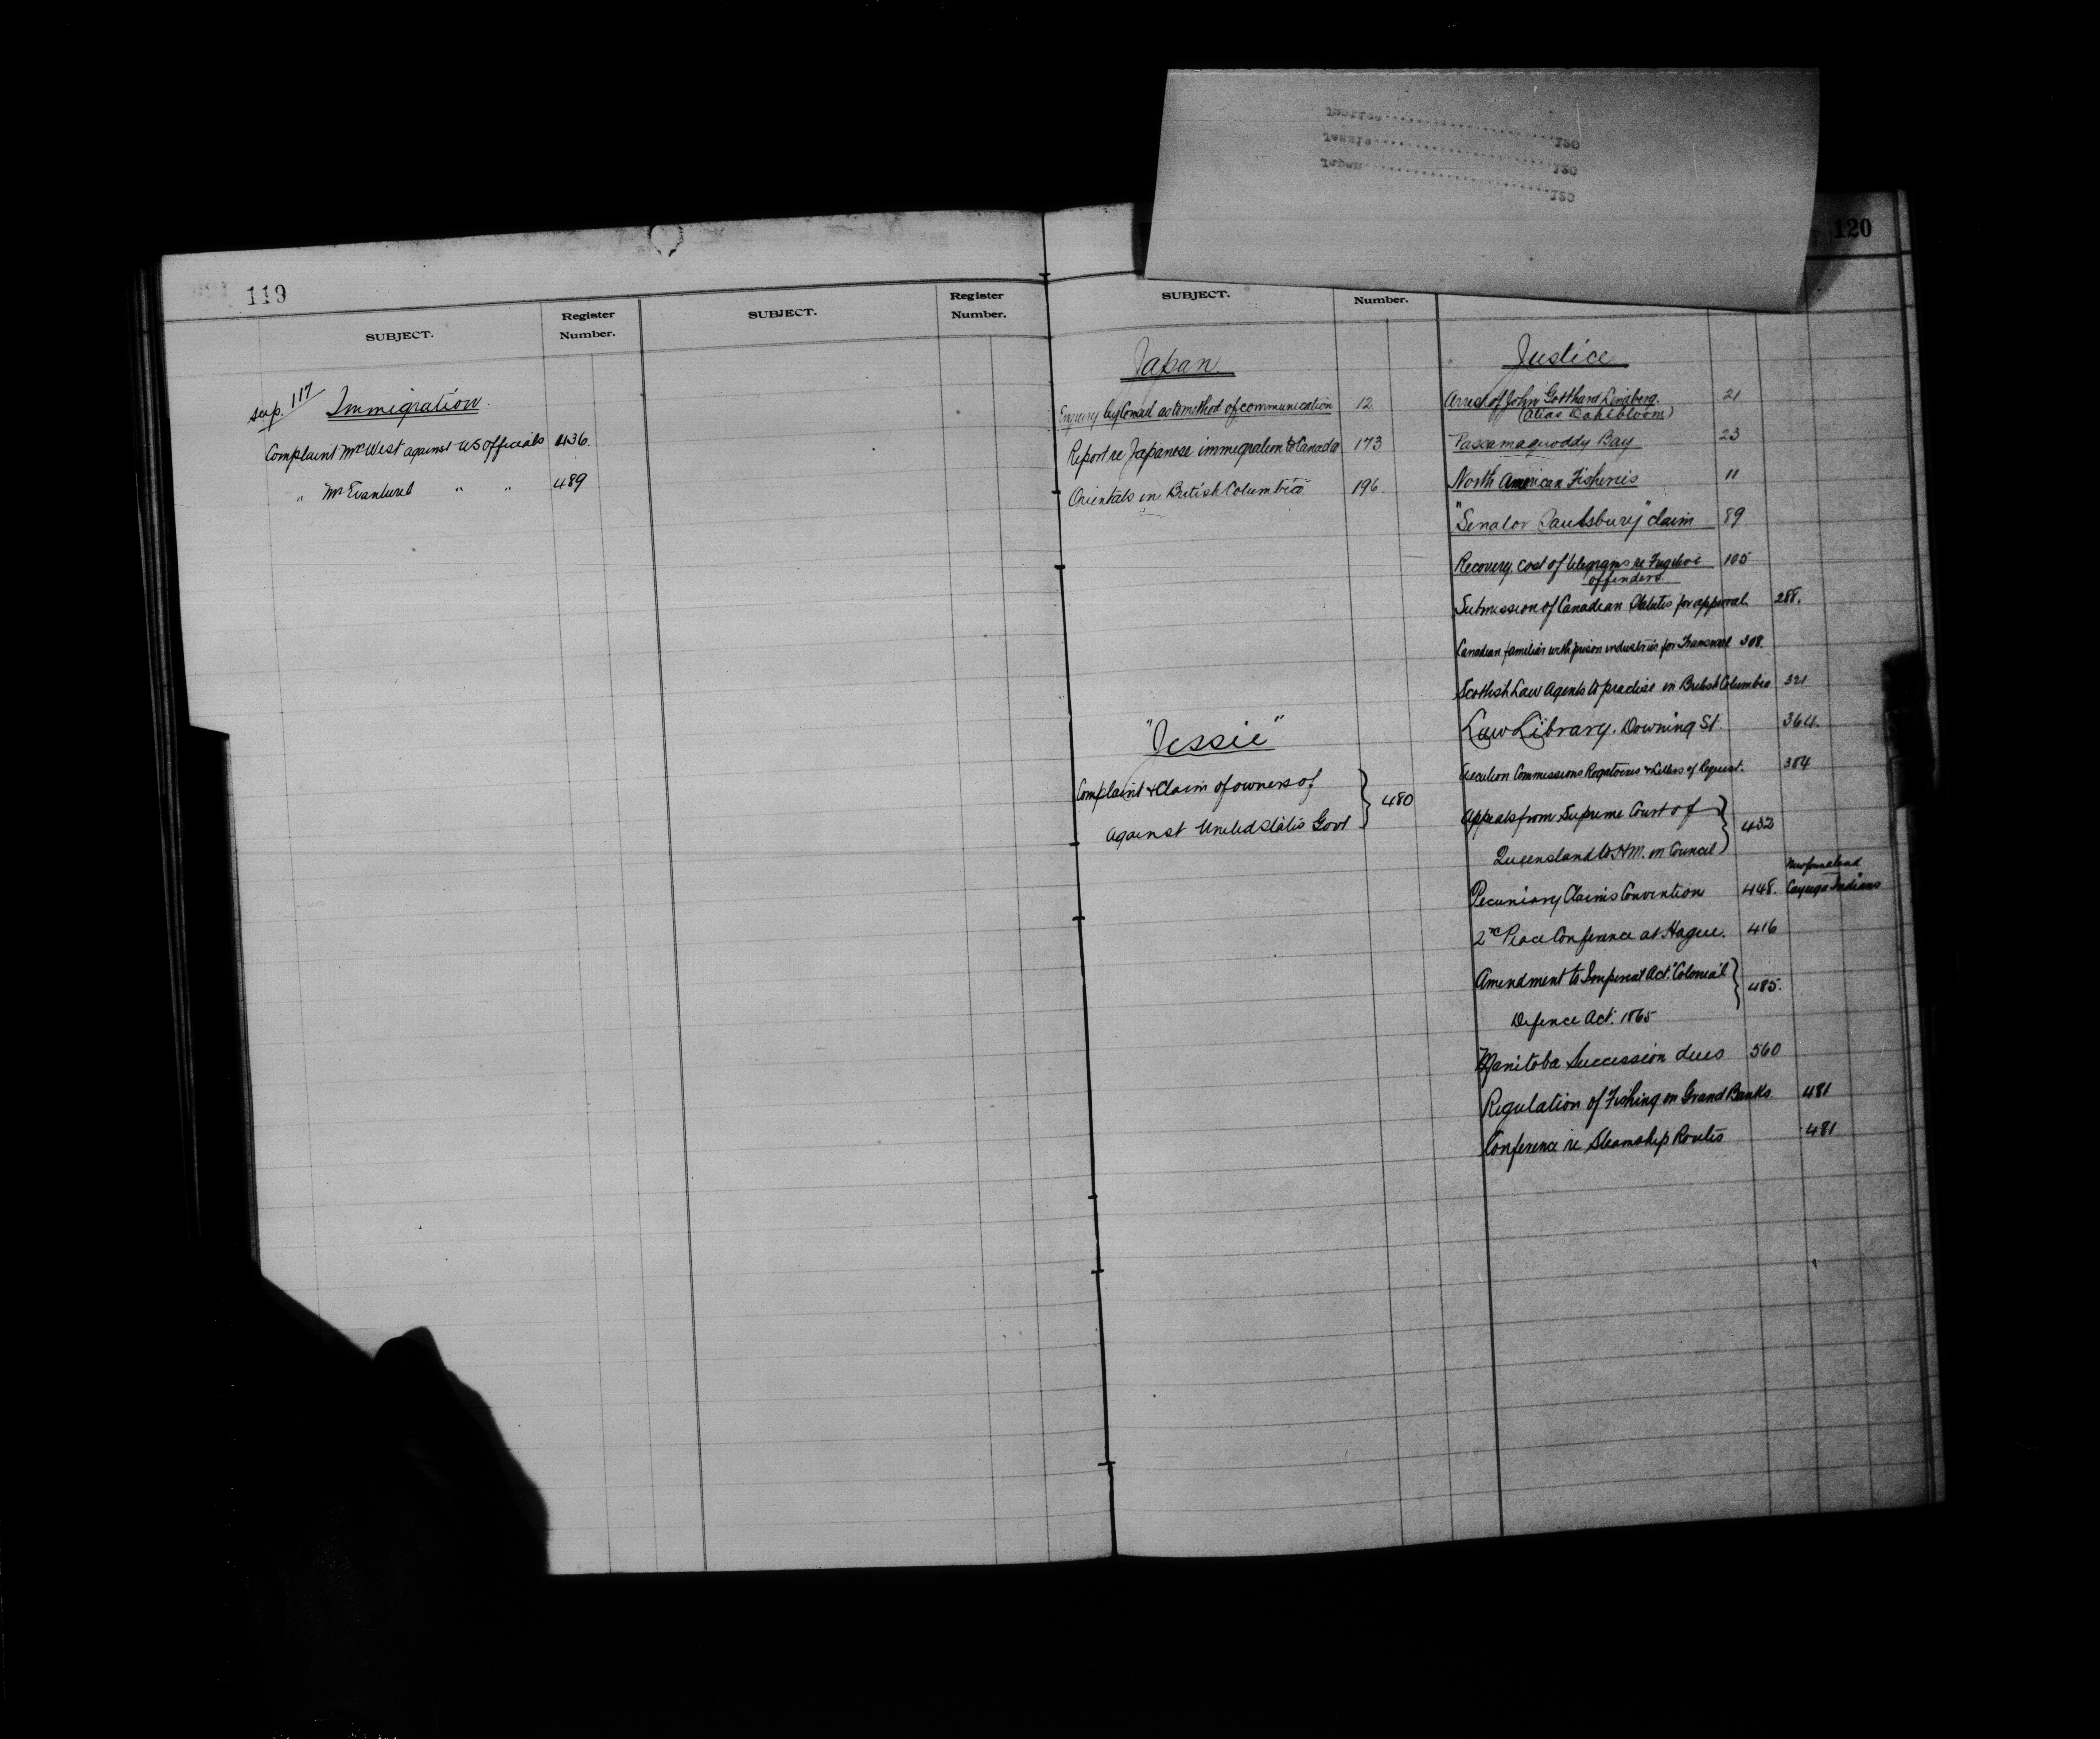 119
SUBJECT.
Register
Number.
SUBJECT.
Register
Number.
sup. 117
Immigration.
Complaint Mr West against US Officials 436.
" Mr Evanturel " " 489
Justice 120
Jessie 120
Japan 120
120
SUBJECT.
Number.
Japan.
Enquiry by Consul as to method of communication 12
Report re Japanese immigration to Canada 173
Orientals in British Columbia 196.
"Jessie"
Complaint & Claim of owners of
against United States Govt } 480
Justice
Arrest of John Gotthard Lindberg. 21
(alias Dahlbloom)
Passamaquoddy Bay 23
North American Fisheries 11
"Senator Saulsbury" claim 89
Recovery, cost of telegrams re Fugitive 105
offenders.
Submission of Canadian Statutes for approval. 288.
Canadian familiar with prison industries for Transvaal 308.
Scottish Law Agents to practise in British Columbia 321
Law Library. Downing St. 364.
Execution Commissions Rogatoires & Letters of Request. 384
Appeals from Supreme Court of
Queensland to H.M. in Council } 432
Newfoundland
Pecuniary Claims Convention 448. Cayuga Indians
2nd Peace Conference at Hague. 416
Amendment to Imperial Act. "Colonial
Defence Act. 1865 } 485.
Manitoba Succession dues 560
Regulation of Fishing on Grand Banks 481
Conference re Steamship Routes 481